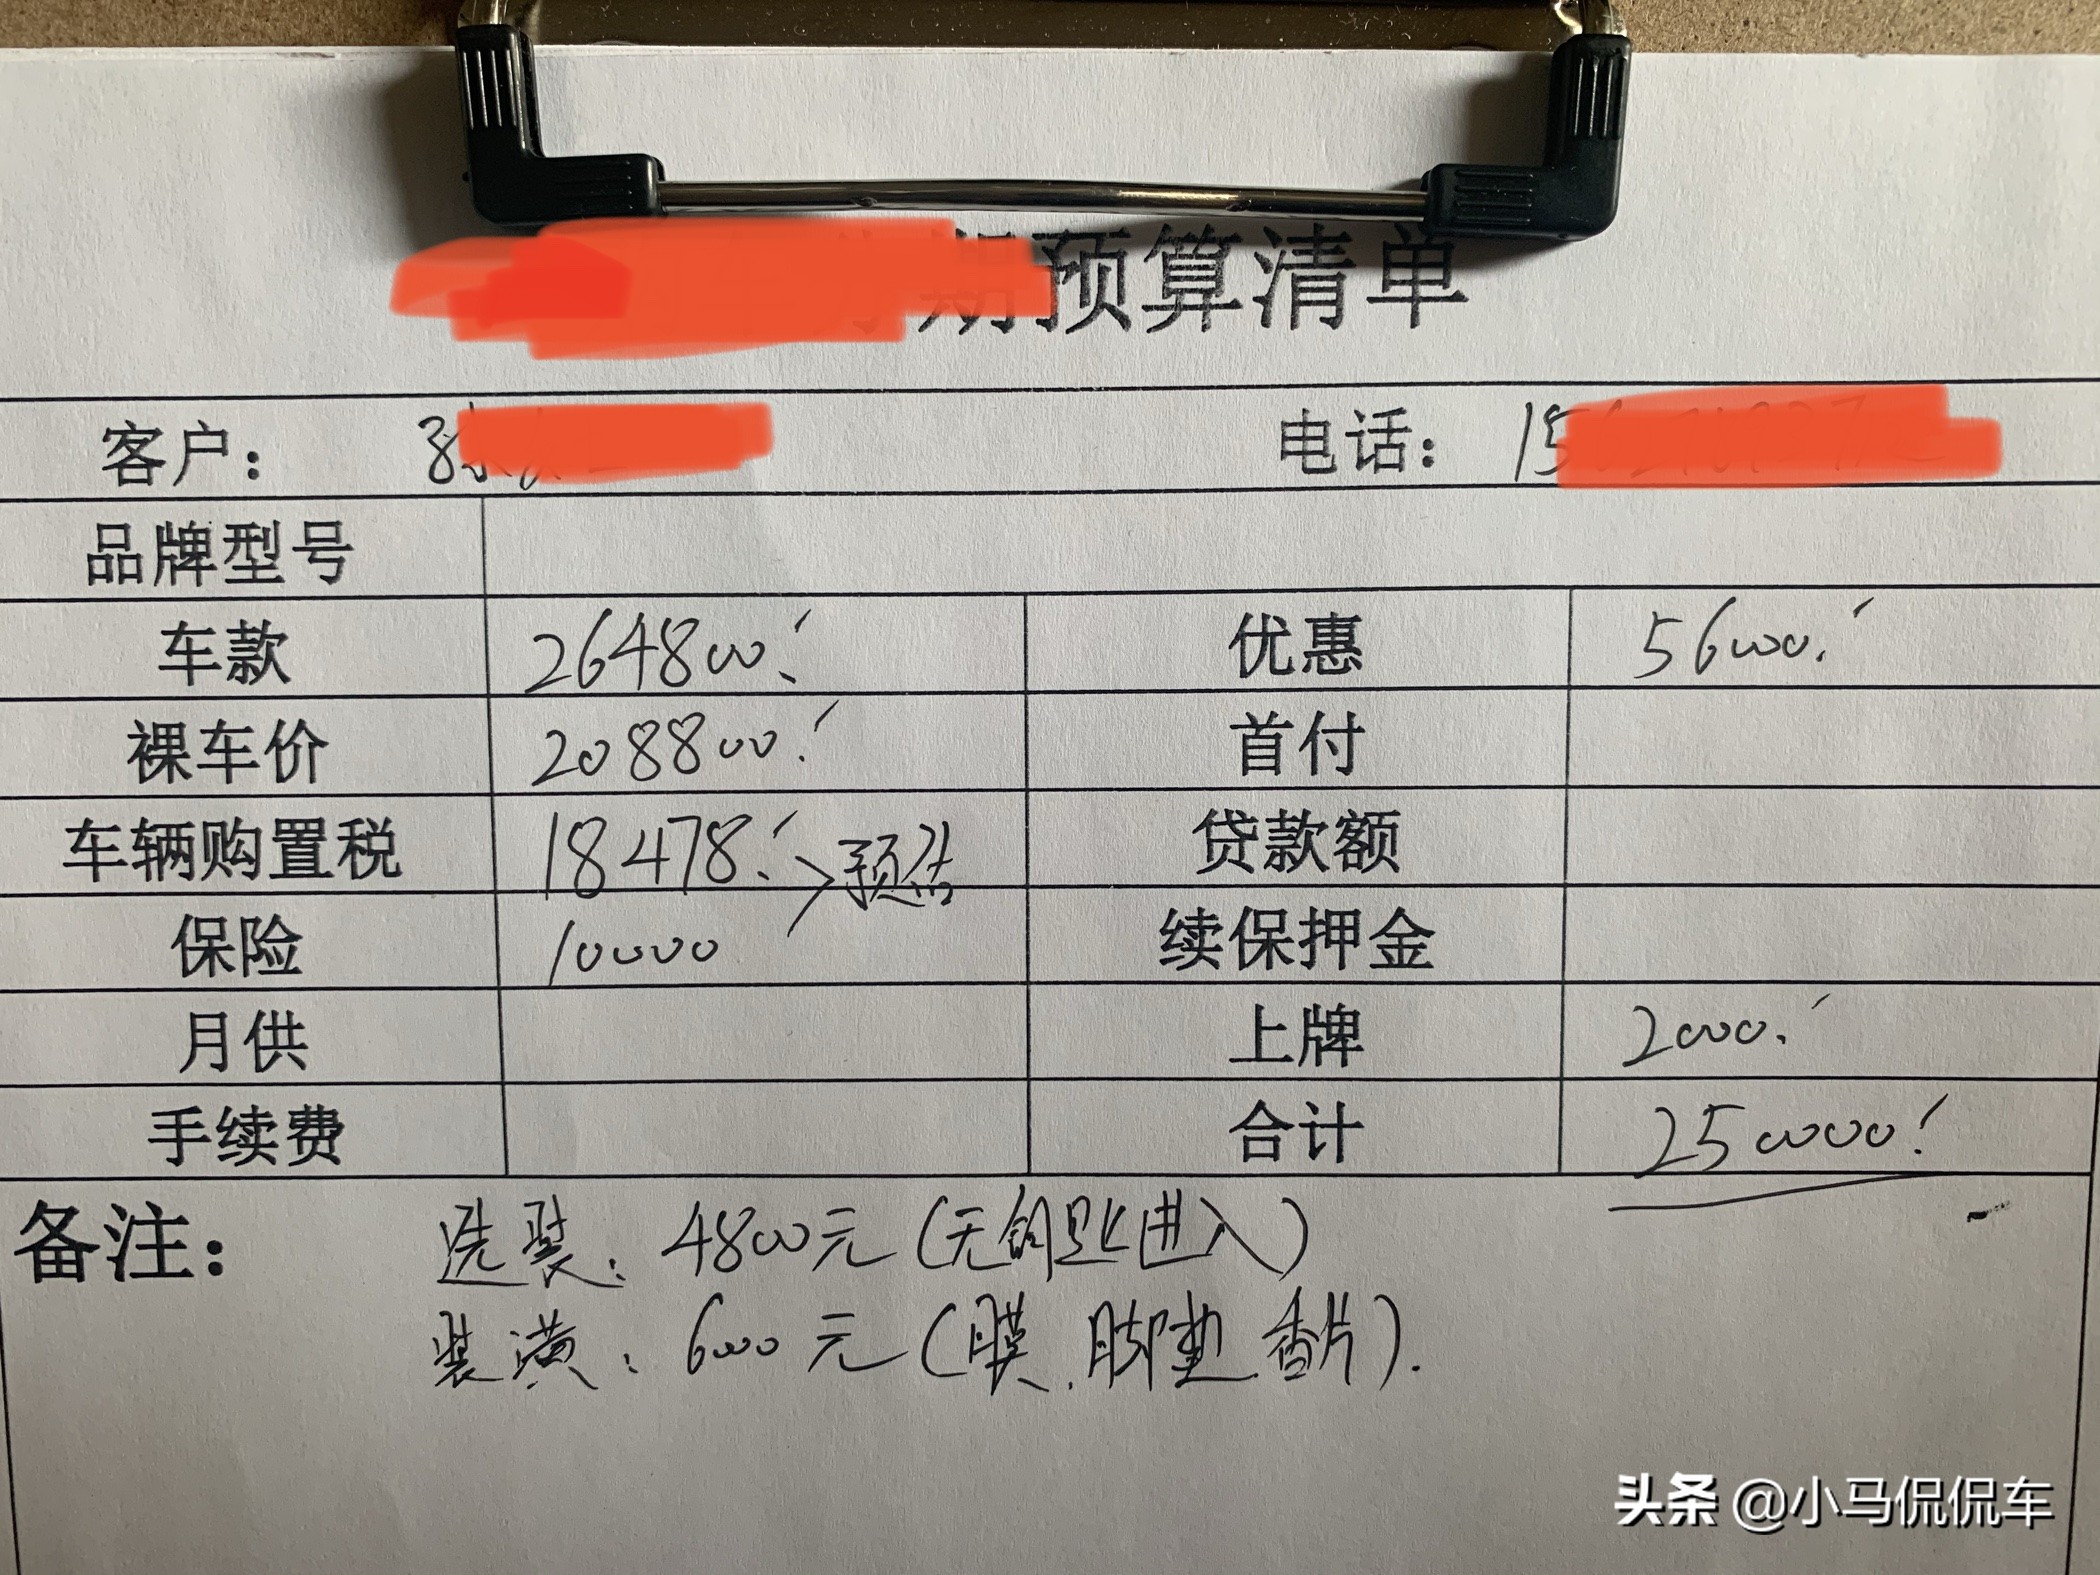 期预算清单
客户： 电话： 15
品牌型号
车款 264800 优惠 56000
裸车价 208800 首付
车辆购置税 18478 预估 贷款额
保险 10000 续保押金
月供 上牌 2000
手续费 合计 250000
备注： 选装：4800元（无钥匙进入）
装潢：6000元（膜、脚垫、香片）.
头条 @小马侃侃车